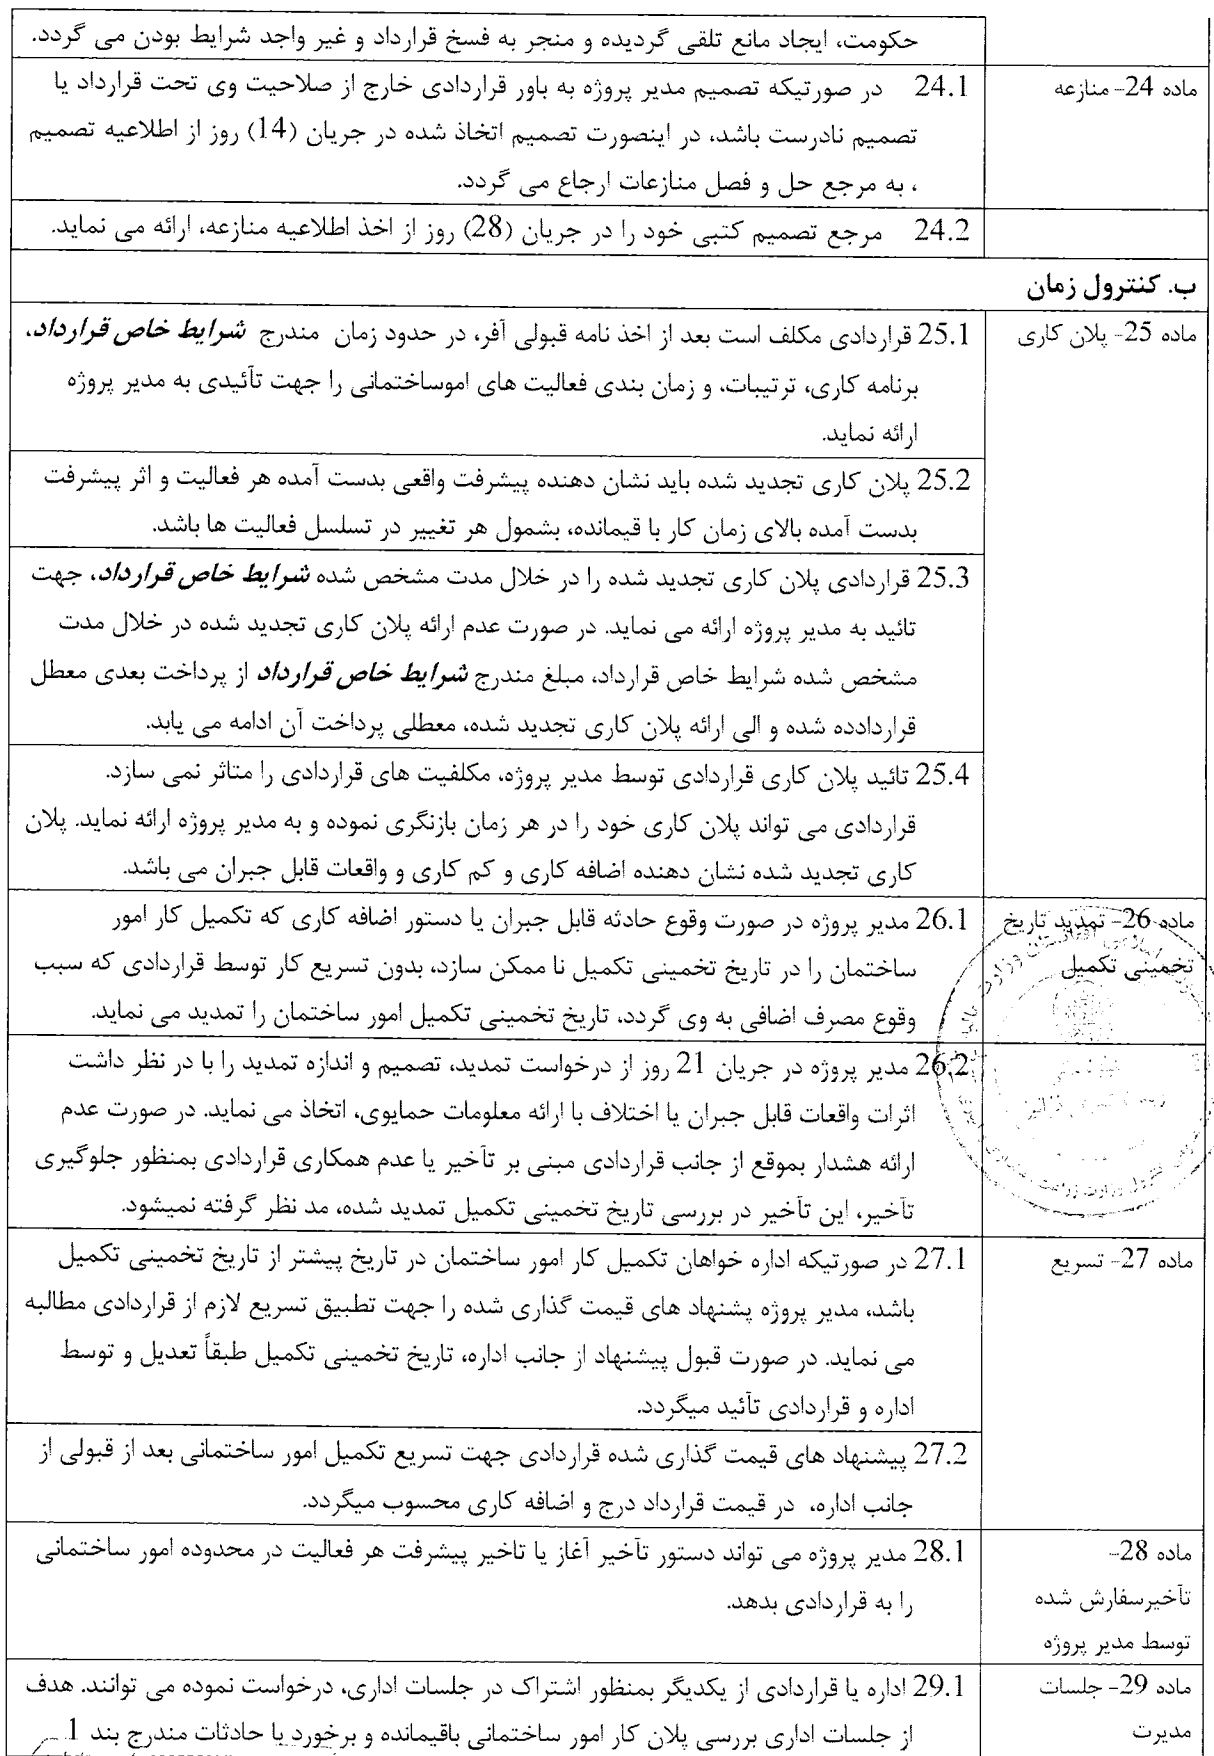 حکومت، ایجاد مانع تلقی گردیده و منجر به فسخ قرارداد و غیر واجد شرایط بودن می گردد.
ماده 24- منازعه
24.1 در صورتیکه تصمیم مدیر پروژه به باور قراردادی خارج از صلاحیت وی تحت قرارداد یا
تصمیم نادرست باشد، در اینصورت تصمیم اتخاذ شده در جریان (14) روز از اطلاعیه تصمیم
، به مرجع حل و فصل منازعات ارجاع می گردد.
24.2 مرجع تصمیم کتبی خود را در جریان (28) روز از اخذ اطلاعیه منازعه، ارائه می نماید.
ب. کنترول زمان
ماده 25- پلان کاری
25.1 قراردادی مکلف است بعد از اخذ نامه قبولی آفر، در حدود زمان مندرج شرایط خاص قرارداد،
برنامه کاری، ترتیبات، و زمان بندی فعالیت های اموساختمانی را جهت تأئیدی به مدیر پروژه
ارائه نماید.
25.2 پلان کاری تجدید شده باید نشان دهنده پیشرفت واقعی بدست آمده هر فعالیت و اثر پیشرفت
بدست آمده بالای زمان کار با قیمانده، بشمول هر تغییر در تسلسل فعالیت ها باشد.
25.3 قراردادی پلان کاری تجدید شده را در خلال مدت مشخص شده شرایط خاص قرارداد، جهت
تائید به مدیر پروژه ارائه می نماید. در صورت عدم ارائه پلان کاری تجدید شده در خلال مدت
مشخص شده شرایط خاص قرارداد، مبلغ مندرج شرایط خاص قرارداد از پرداخت بعدی معطل
قراردادده شده و الی ارائه پلان کاری تجدید شده، معطلی پرداخت آن ادامه می یابد.
25.4 تائید پلان کاری قراردادی توسط مدیر پروژه، مکلفیت های قراردادی را متاثر نمی سازد.
قراردادی می تواند پلان کاری خود را در هر زمان بازنگری نموده و به مدیر پروژه ارائه نماید. پلان
کاری تجدید شده نشان دهنده اضافه کاری و کم کاری و واقعات قابل جبران می باشد.
ماده 26- تمدید تاریخ
تخمینی تکمیل
26.1 مدیر پروژه در صورت وقوع حادثه قابل جبران یا دستور اضافه کاری که تکمیل کار امور
ساختمان را در تاریخ تخمینی تکمیل نا ممکن سازد، بدون تسریع کار توسط قراردادی که سبب
وقوع مصرف اضافی به وی گردد، تاریخ تخمینی تکمیل امور ساختمان را تمدید می نماید.
26.2 مدیر پروژه در جریان 21 روز از درخواست تمدید، تصمیم و اندازه تمدید را با در نظر داشت
اثرات واقعات قابل جبران یا اختلاف با ارائه معلومات حمایوی، اتخاذ می نماید. در صورت عدم
ارائه هشدار بموقع از جانب قراردادی مبنی بر تأخیر یا عدم همکاری قراردادی بمنظور جلوگیری
تأخیر، این تأخیر در بررسی تاریخ تخمینی تکمیل تمدید شده، مد نظر گرفته نمیشود.
ماده 27- تسریع
27.1 در صورتیکه اداره خواهان تکمیل کار امور ساختمان در تاریخ پیشتر از تاریخ تخمینی تکمیل
باشد، مدیر پروژه پشنهاد های قیمت گذاری شده را جهت تطبیق تسریع لازم از قراردادی مطالبه
می نماید. در صورت قبول پیشنهاد از جانب اداره، تاریخ تخمینی تکمیل طبقاً تعدیل و توسط
اداره و قراردادی تأئید میگردد.
27.2 پیشنهاد های قیمت گذاری شده قراردادی جهت تسریع تکمیل امور ساختمانی بعد از قبولی از
جانب اداره، در قیمت قرارداد درج و اضافه کاری محسوب میگردد.
ماده 28-
تأخیرسفارش شده
توسط مدیر پروژه
28.1 مدیر پروژه می تواند دستور تأخیر آغاز یا تاخیر پیشرفت هر فعالیت در محدوده امور ساختمانی
را به قراردادی بدهد.
ماده 29- جلسات
مدیرت
29.1 اداره یا قراردادی از یکدیگر بمنظور اشتراک در جلسات اداری، درخواست نموده می توانند. هدف
از جلسات اداری بررسی پلان کار امور ساختمانی باقیمانده و برخورد با حادثات مندرج بند 1